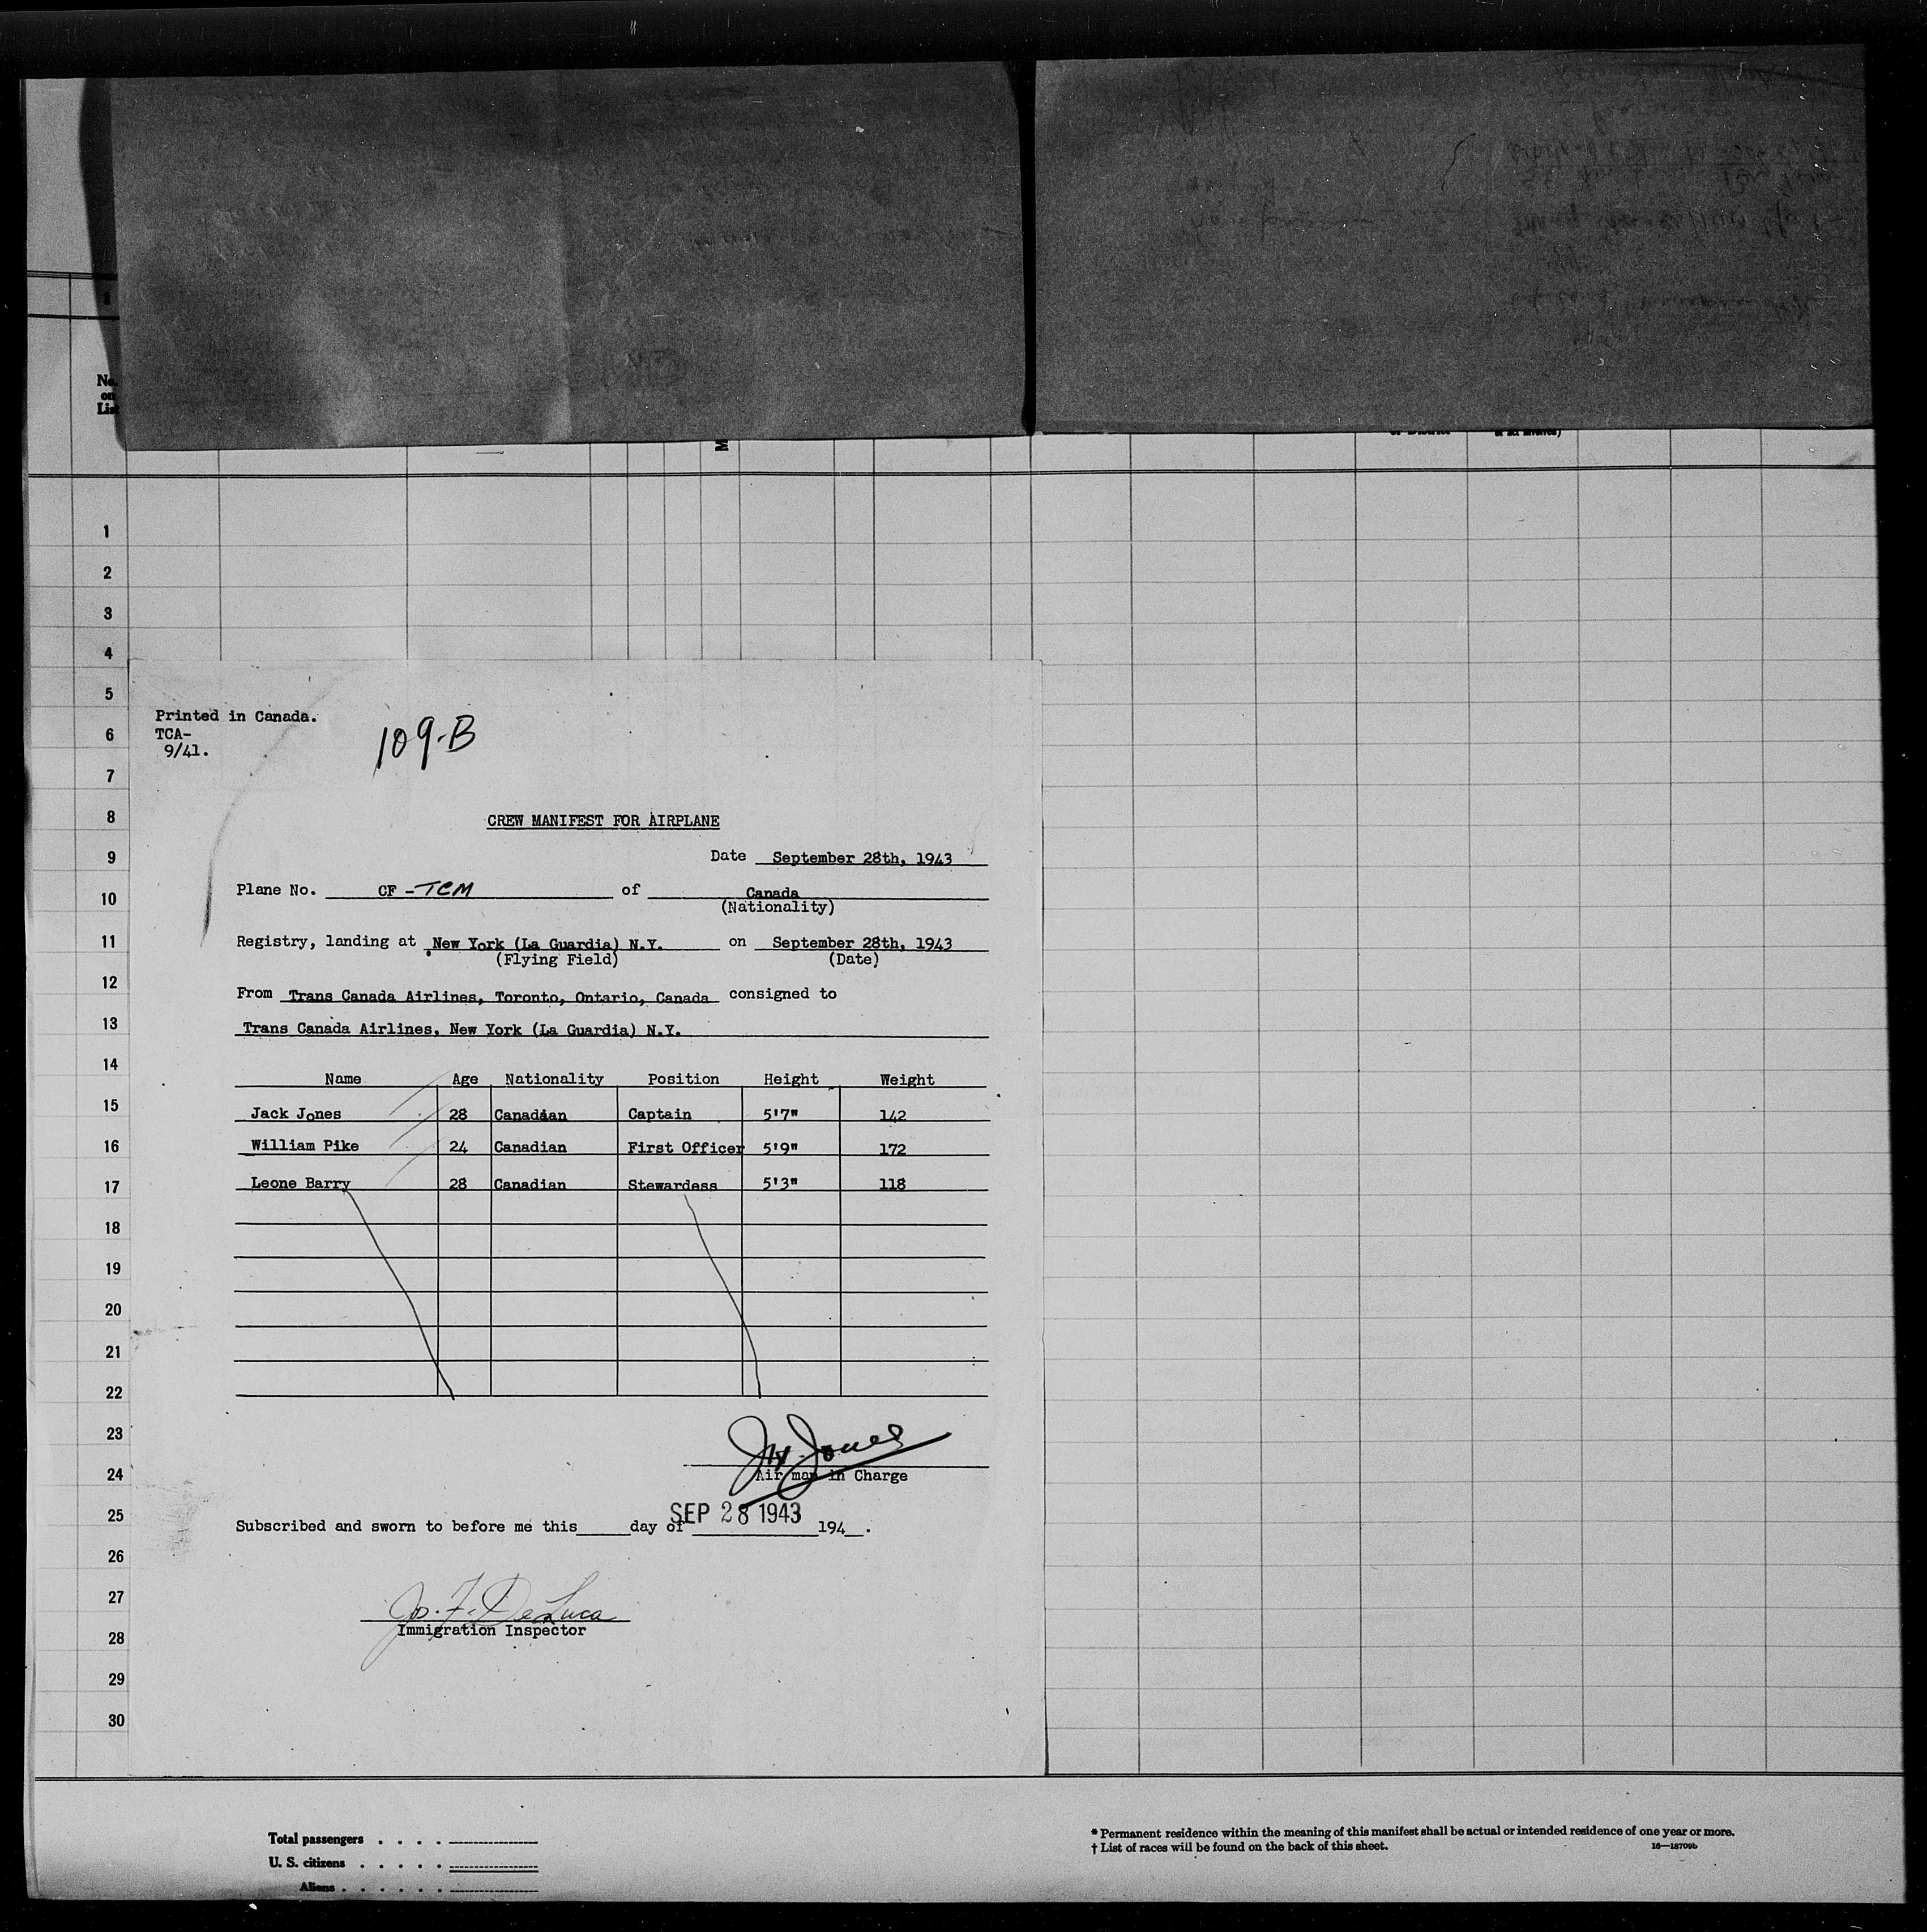 No.
on
List
1
2
3
4
5
6
7
8
9
10
11
12
13
14
15
16
17
18
19
20
21
22
23
24
25
26
27
28
29
30
Printed in Canada.
TCA-
9/41.
109-B
CREW MANIFEST FOR AIRPLANE
Date September 28th, 1943
Plane No. CF -TCM of Canada
(Nationality)
Registry, landing at New York (La Guardia) N.Y. on September 28th, 1943
(Flying Field) (Date)
From Trans Canada Airlines, Toronto, Ontario, Canada consigned to
Trans Canada Airlines, New York (La Guardia) N.Y.
Name Age Nationality Position Height Weight
Jack Jones 28 Canadian Captain 5'7" 142
William Pike 24 Canadian First Officer 5'9" 172
Leone Barry 28 Canadian Stewardess 5'3" 118
Jones
Air man in Charge
SEP 28 1943
Subscribed and sworn to before me this day of 194 .
Jos. F. DeLuca
Immigration Inspector
Total passengers . . . .
U. S. citizens . . . . .
Aliens . . . . . .
* Permanent residence within the meaning of this manifest shall be actual or intended residence of one year or more.
† List of races will be found on the back of this sheet. 16—18709b